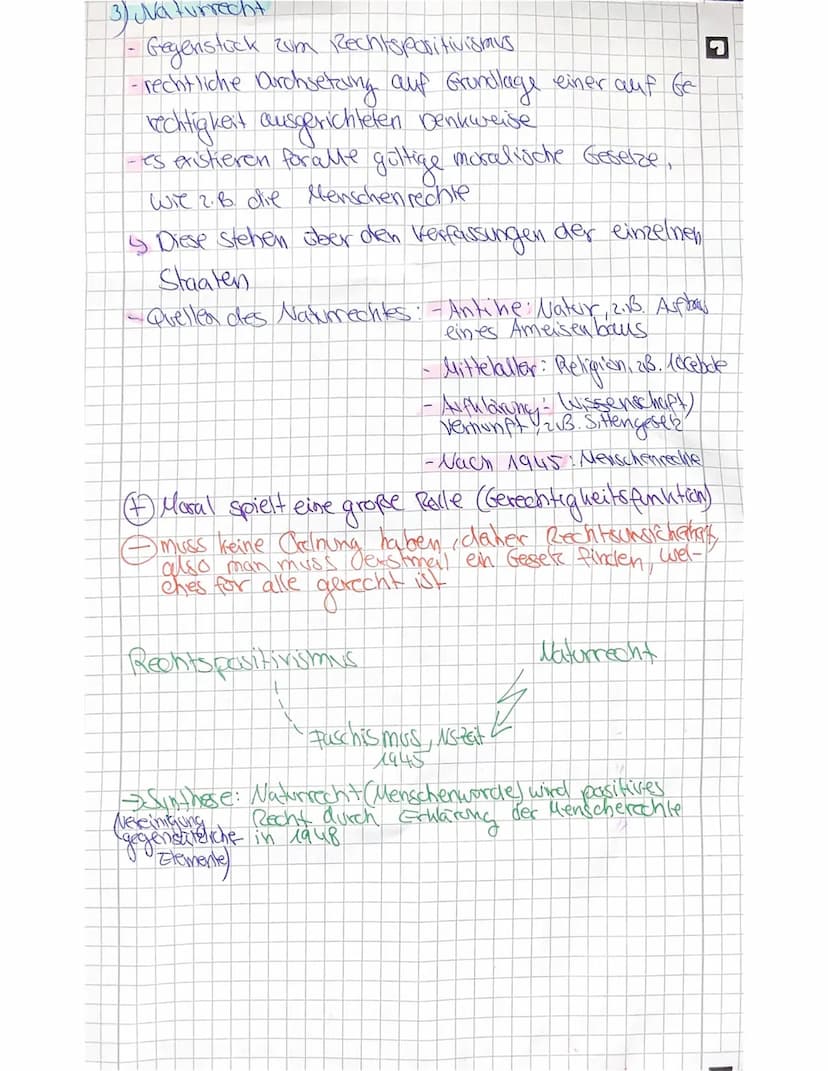 3) Naturrecht
- Gegenstück zum Rechtspositivismus
- rechtliche Durchsetzung auf Grundlage einer auf Ge
rechtigkeit ausgerichteten Denkweise
- es existieren für alle gültige moralische Gesetze,
wie z.B. die Menschenrechte
↳ Diese stehen über den Verfassungen der einzelnen
Staaten
- Quellen des Naturrechtes: - Antike: Natur, z.B. Aufbau
eines Ameisenbaus
- Mittelalter: Religion, z.B. 10 Gebote
- Aufklärung: Wissenschaft/
Vernunft, z.B. Sittengesetz
- Nach 1945: Menschenrechte
⊕ Moral spielt eine große Rolle (Gerechtigkeitsfunktion)
⊖ muss keine Ordnung haben, daher Rechtsunsicherheit,
also man muss erstmal ein Gesetz finden, wel-
ches für alle gerecht ist
Rechtspositivismus Naturrecht
Faschismus, NS-Zeit
1945
→ Synthese: Naturrecht (Menschenwürde) wird positives
(Vereinigung Recht durch Erklärung der Menscherechte
gegensätzliche in 1948
Elemente)